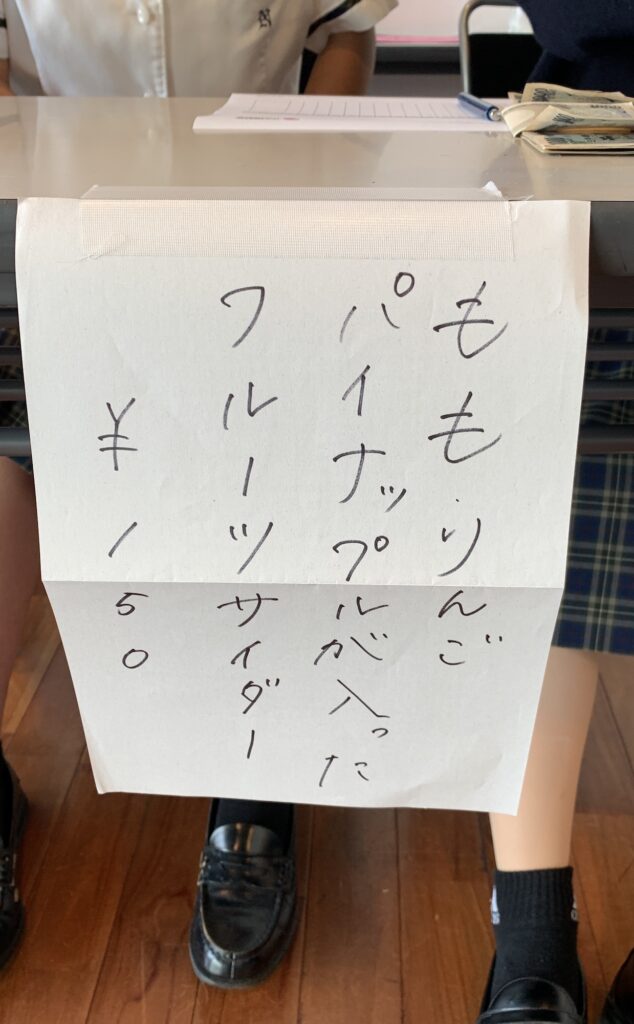 もも・りんご
パイナップルが入った
フルーツサイダー
¥150